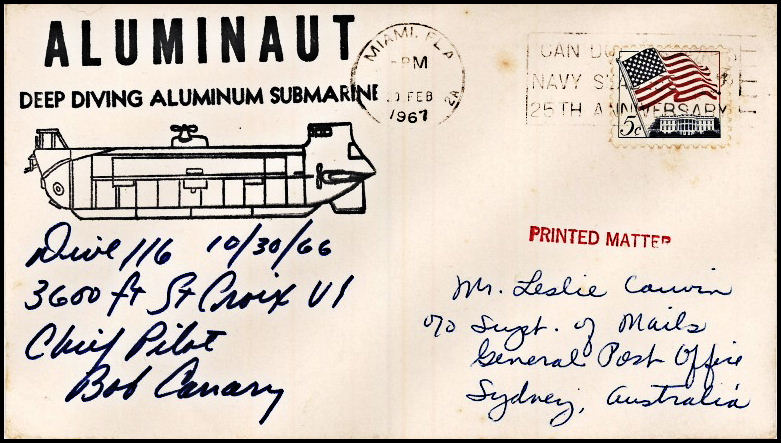 ALUMINAUT
DEEP DIVING ALUMINUM SUBMARINE
MIAMI, FLA
PM
FEB
1967
CAN DO
NAVY
25TH ANNIVERSARY
5c
Dive 116 10/30/66
3600 ft St Croix VI
Chief Pilot
Bob Canary
PRINTED MATTER
Mr. Leslie
c/o Supt. of Mails
General Post Office
Sydney, Australia